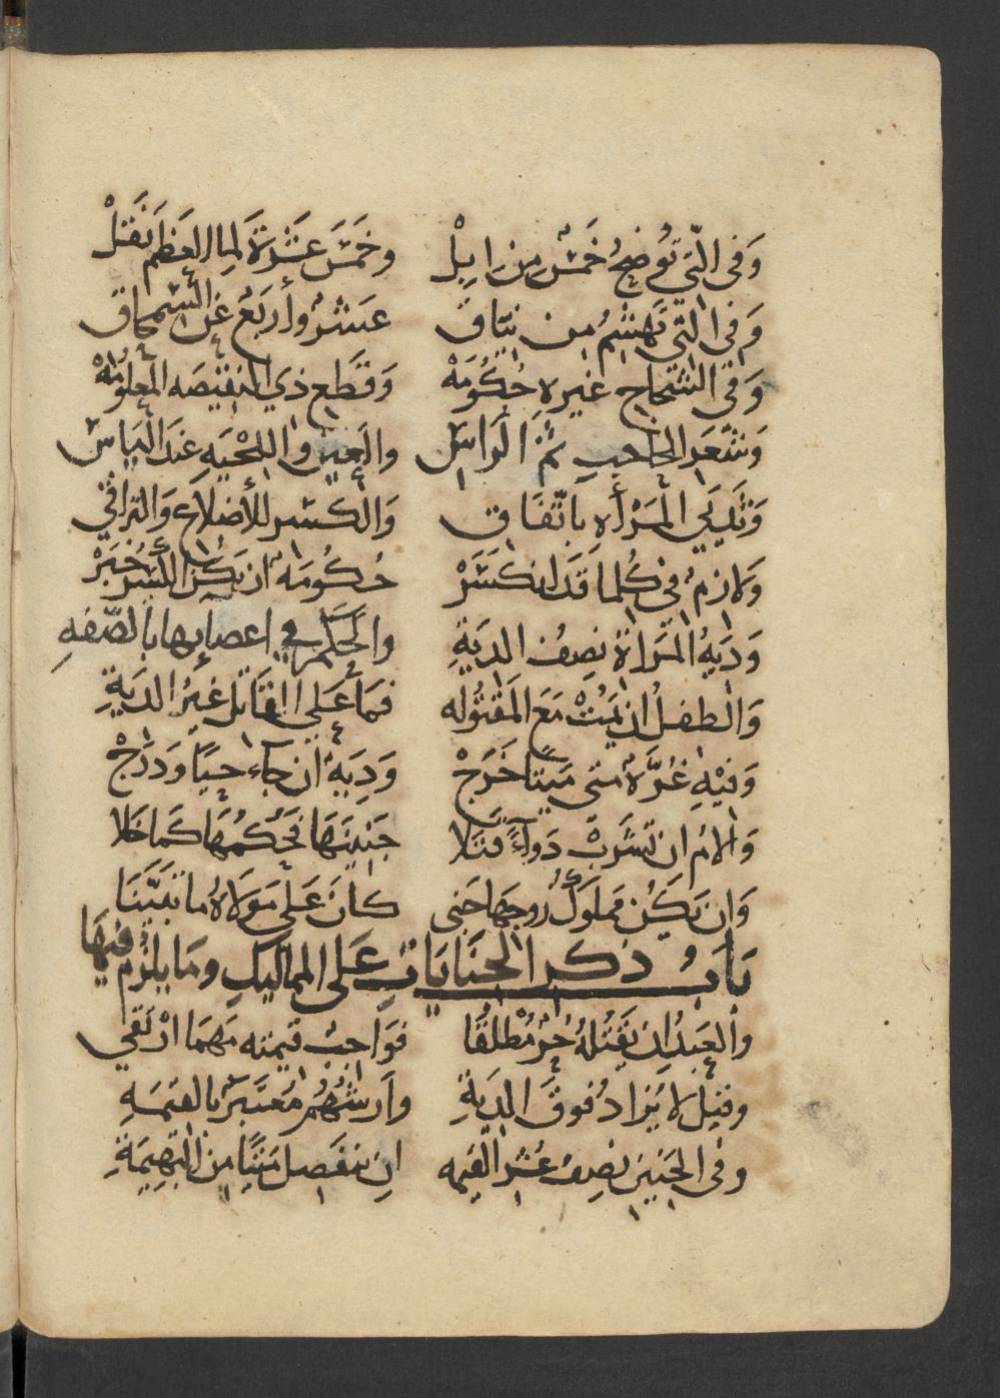 وَفي الّتي تُوضِحُ خَمْسٌ مِن اِبِلْ وخَمْسَ عَشْرَةَ لِما العَظْمَ نَقَلْ
وَفي الّتي تَهْشِمُ مِن نيَاق عَشْرٌ وأربَعٌ عَن السّمحاق
وَفي الشجاج غيرهِ حُكُومَهْ وَقَطع ذي النقيصَه المعلُومَهْ
وَشَعَر الحاجبِ ثمّ الراس والعين واللحْيَهِ عندَ الياس
وَثَديَي المَرْأَهِ باتّفَاق وَالكَسْر للأضلاع وَالتراقي
وَلازمٌ في كُلما قَد انكَسَرْ حُكُومَهٌ ان يكن الكسر خَبَرْ
وَدِيَهُ المَرأةِ نصِفُ الديَةِ والحُكم في اعصابها بالصّفَهِ
وَالطفلُ ان يَمُتْ مَعَ المَقْتُوله فمَا عَلى القَاتل غيرُ الديَةِ
وَفيْهِ غُرَّةٌ متى مَيتًا خَرَجْ وَدِيَهٌ ان جاء حيًا وَدَرَجْ
وَالامُ ان تَشرَبْ دَوآءً قتَلا جَنينَهَا فحُكمُهَا كَما خَلا
وَان يَكُن مَملوكٌ روجهَا جَنى كانَ عَلى مَولاهُ ما تَبَيَّنَا
بَابُ ذكر الجنَايَاتِ عَلى المماليكِ ومَا يلزَم فيهَا
والعَبدُ ان يَقتُلهُ حُرٌ مُطلقًا فوَاجبٌ قيمته مَهمَا ارْتَقي
وقيلَ لا يُزادُ فوقَ الديَةِ وأرشُهُم مُعتَبَرٌ بالقيمَهِ
وفى الجَنين نصِفُ عُشر القيمه ان ينفَصل مَيتًا من البَهيمَةِ